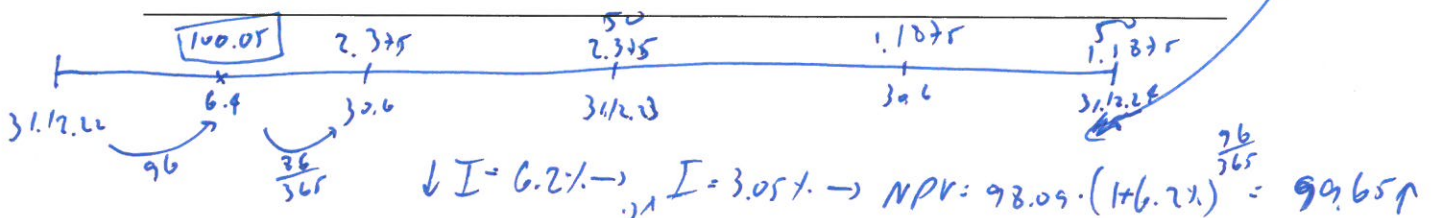 50 50
100.05 2.375 2.375 1.1875 1.1875
31.12.22 6.4 30.6 31.12.23 30.6 31.12.24
96 86/365 ↓ I = 6.2% → I = 3.05% → NPV = 98.09 · (1+6.2%)^96/365 = 99.65